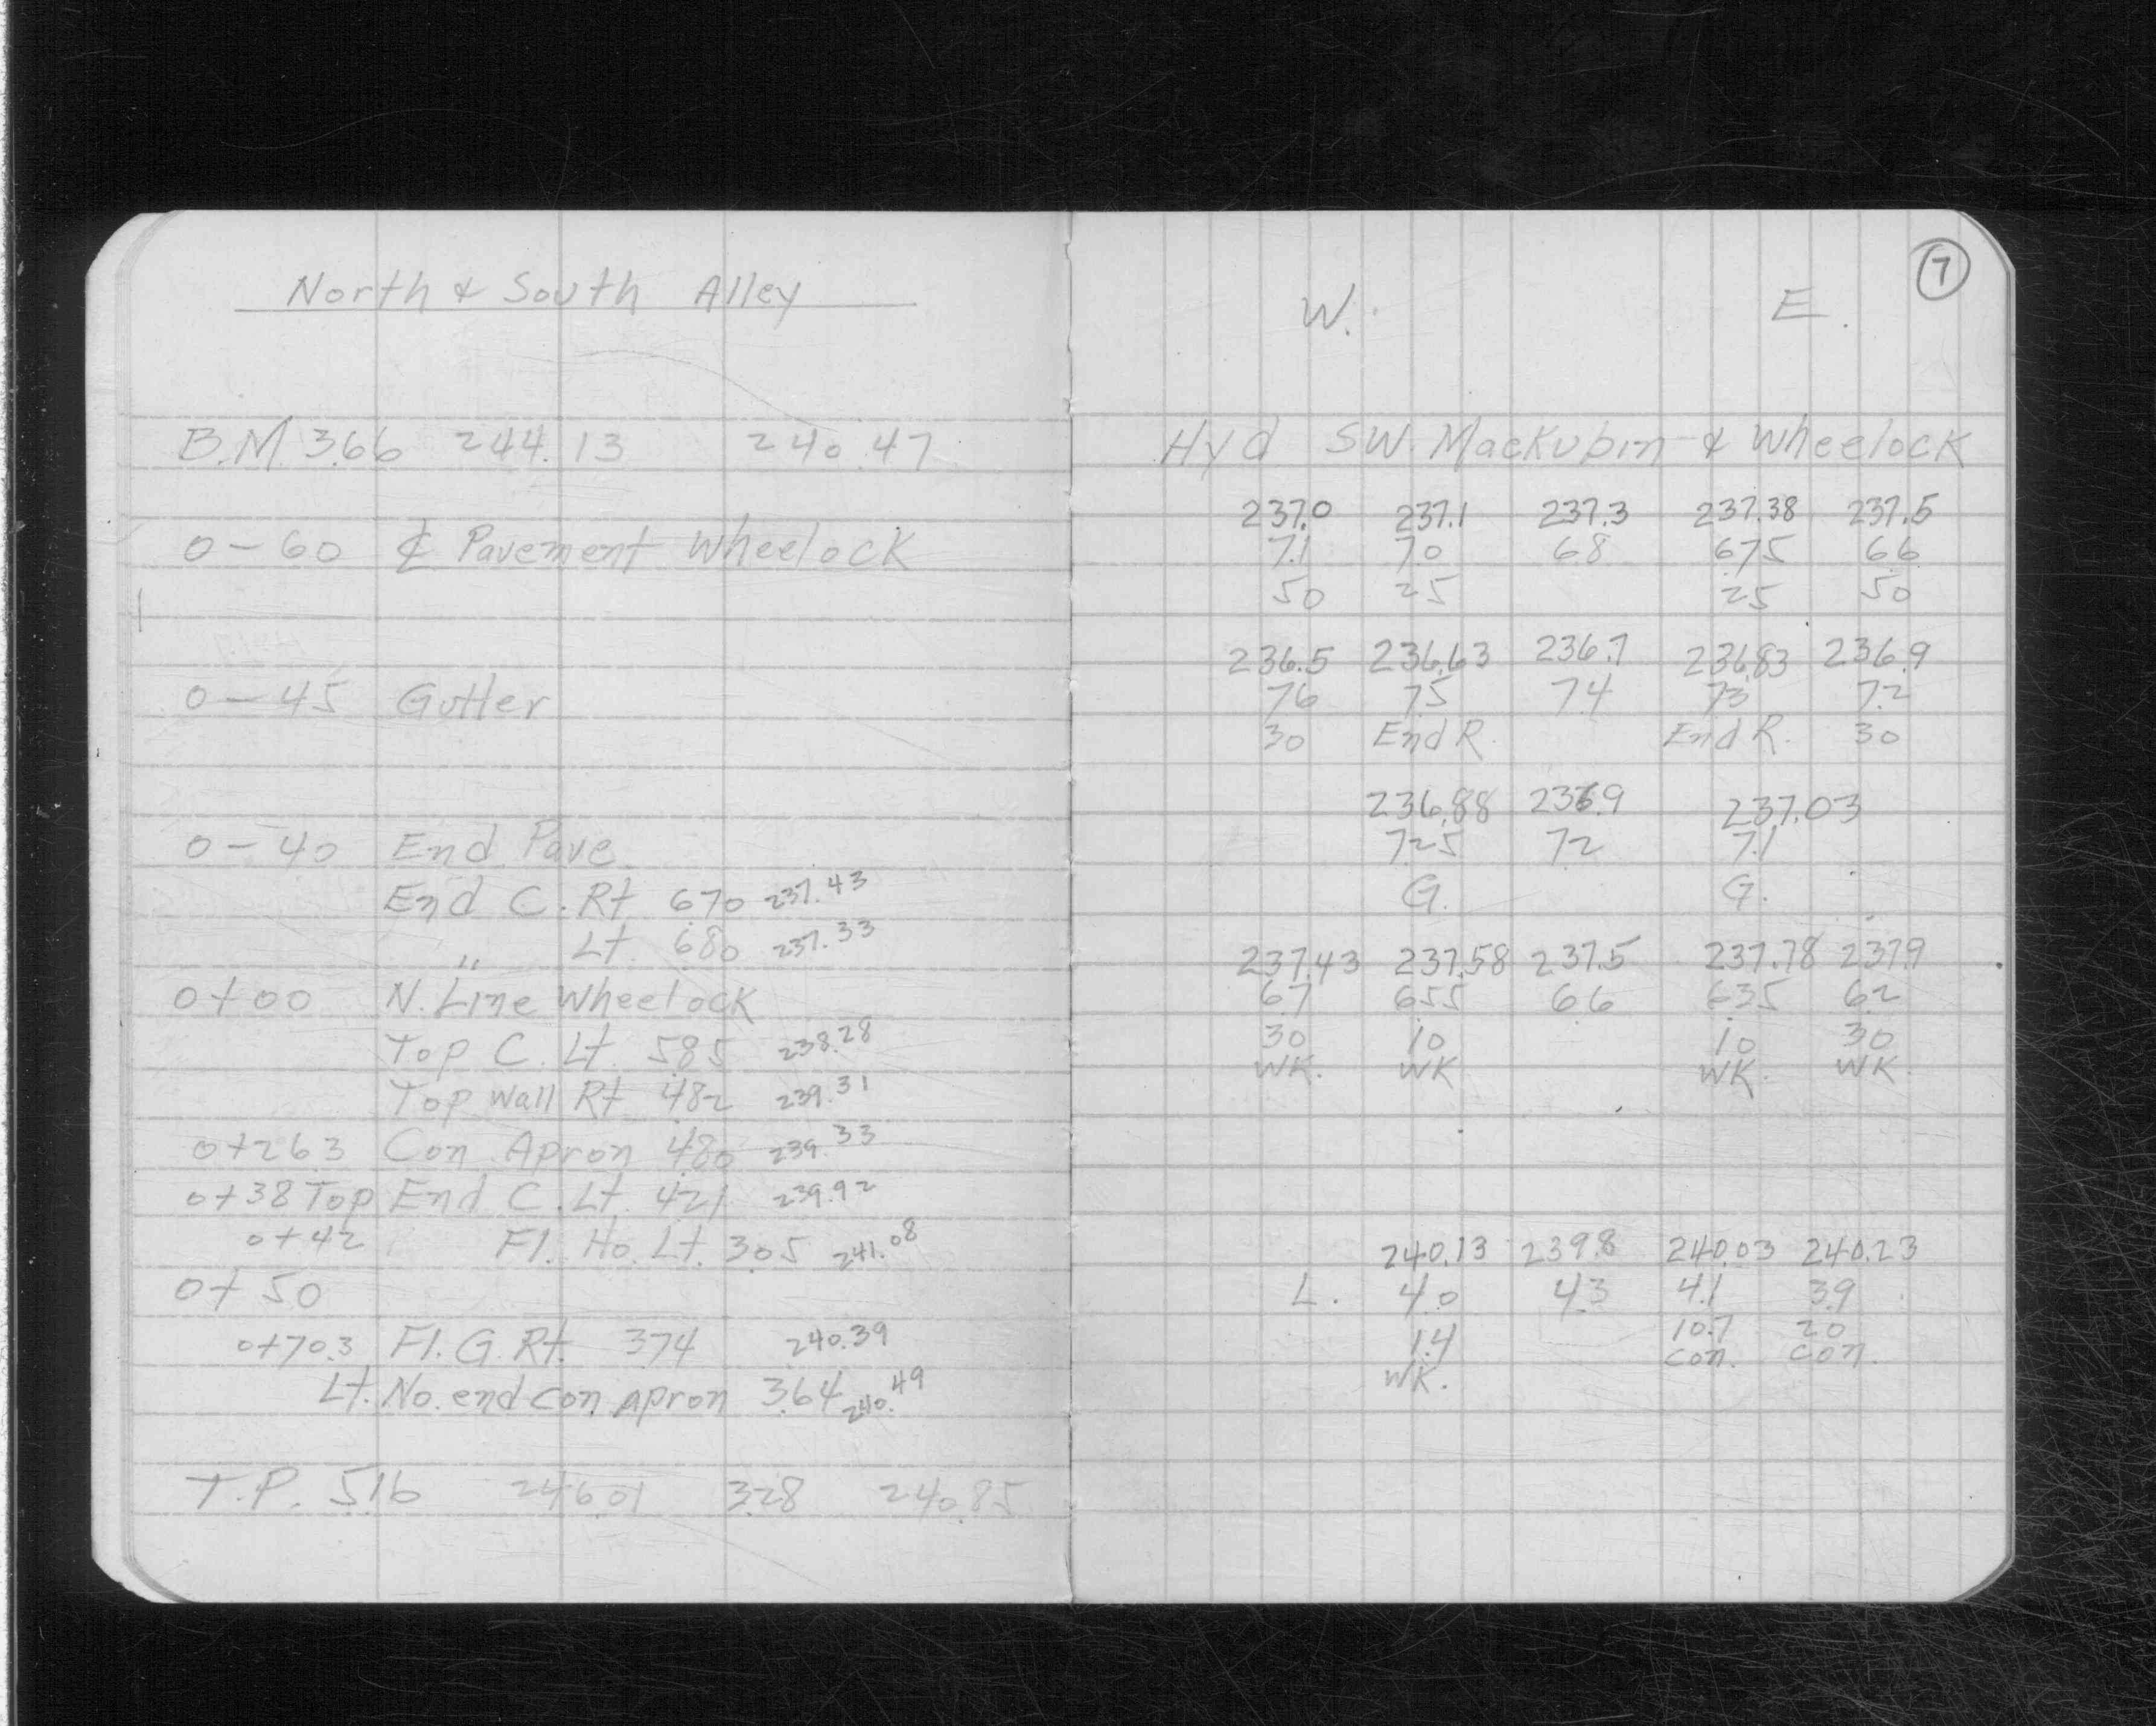 North & South Alley
B.M. 3.66 244.13 240.47
0-60 ℄ Pavement Wheelock
0-45 Gutter
0-40 End Pave
End C. Rt 6.70 237.43
" Lt. 6.80 237.33
0+00 N. Line Wheelock
Top C. Lt. 5.85 238.28
Top Wall Rt 4.82 239.31
0+26.3 Con. Apron 4.80 239.33
0+38 Top End C. Lt. 4.21 239.92
0+42 Fl. Ho. Lt. 3.05 241.08
0+50
0+70.3 Fl. G. Rt. 3.74 240.39
Lt. No. end con. apron 3.64 240.49
T.P. 5.16 246.01 3.28 240.85
7
W. E.
Hyd SW. Mackubin & Wheelock
237.0 237.1 237.3 237.38 237.5
7.1 7.0 6.8 6.75 6.6
50 25 25 50
236.5 236.63 236.7 236.83 236.9
7.6 7.5 7.4 7.3 7.2
30 End R. End R. 30
236.88 236.9 237.03
7.25 7.2 7.1
G. G.
237.43 237.58 237.5 237.78 237.9
6.7 6.55 6.6 6.35 6.2
30 10 10 30
WK. WK WK. WK.
240.13 239.8 240.03 240.23
L. 4.0 4.3 4.1 3.9
1.4 10.7 20
WK. con. con.